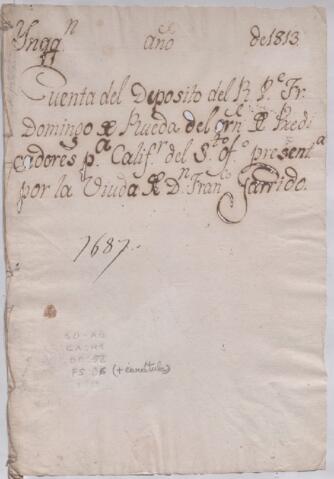 Ynqq.n año de 1813.
Cuenta del Deposito del R. P.e Fr.
Domingo de Rueda del orn. de Predi
cadores p.a Calif.r del S.to Of.o present.a
por la Viuda de D.n Fran.co Garrido.
1687.
(+ carátula)